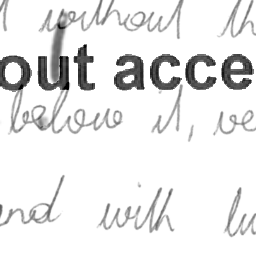 without th
out acce
below it, ve
and with lu